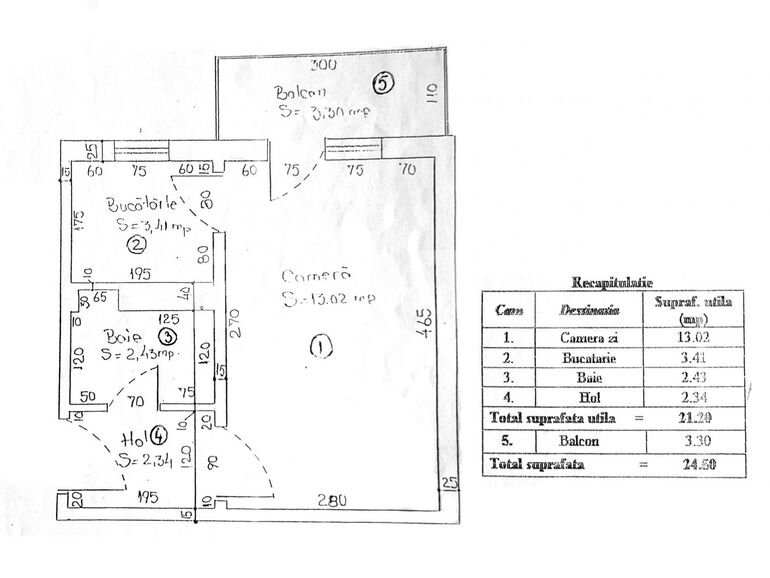 300
Balcon
⑤
S= 3,30 mp
110
25
60 75 60 15 60 75 75 70
15
80
Bucătărie
S= 3,41 mp
175
②
80
195
10
Cameră
S=13.02 mp
①
30 65
40
125
270
465
10
Baie ③
S= 2,43 mp
120
120
15
50 70 75
10
10 20
Hol ④
S= 2,34
120
90
20
195
10
15
280
25
Recapitulatie
Cam Destinatia Supraf. utila
(mp)
1. Camera zi 13.02
2. Bucatarie 3.41
3. Baie 2.43
4. Hol 2.34
Total suprafata utila = 21.20
5. Balcon 3.30
Total suprafata = 24.50